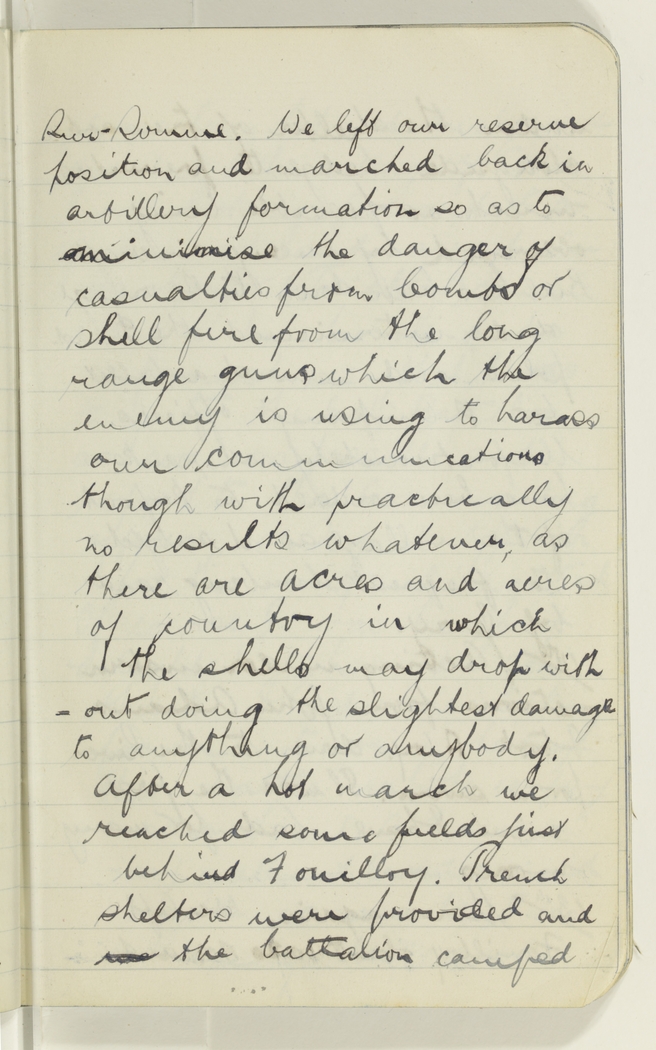 Sur-Somme. We left our reserve
position and marched back in
artillery formation so as to
minimise the danger of
casualties from bombs or
shell fire from the long
range guns which the
enemy is using to harass
our communications
though with practically
no results whatever, as
there are acres and acres
of country in which
the shells may drop with
- out doing the slightest damage
to anything or anybody.
After a hot march we
reached some fields just
behind Fouilloy. Trench
shelters were provided and
the battalion camped